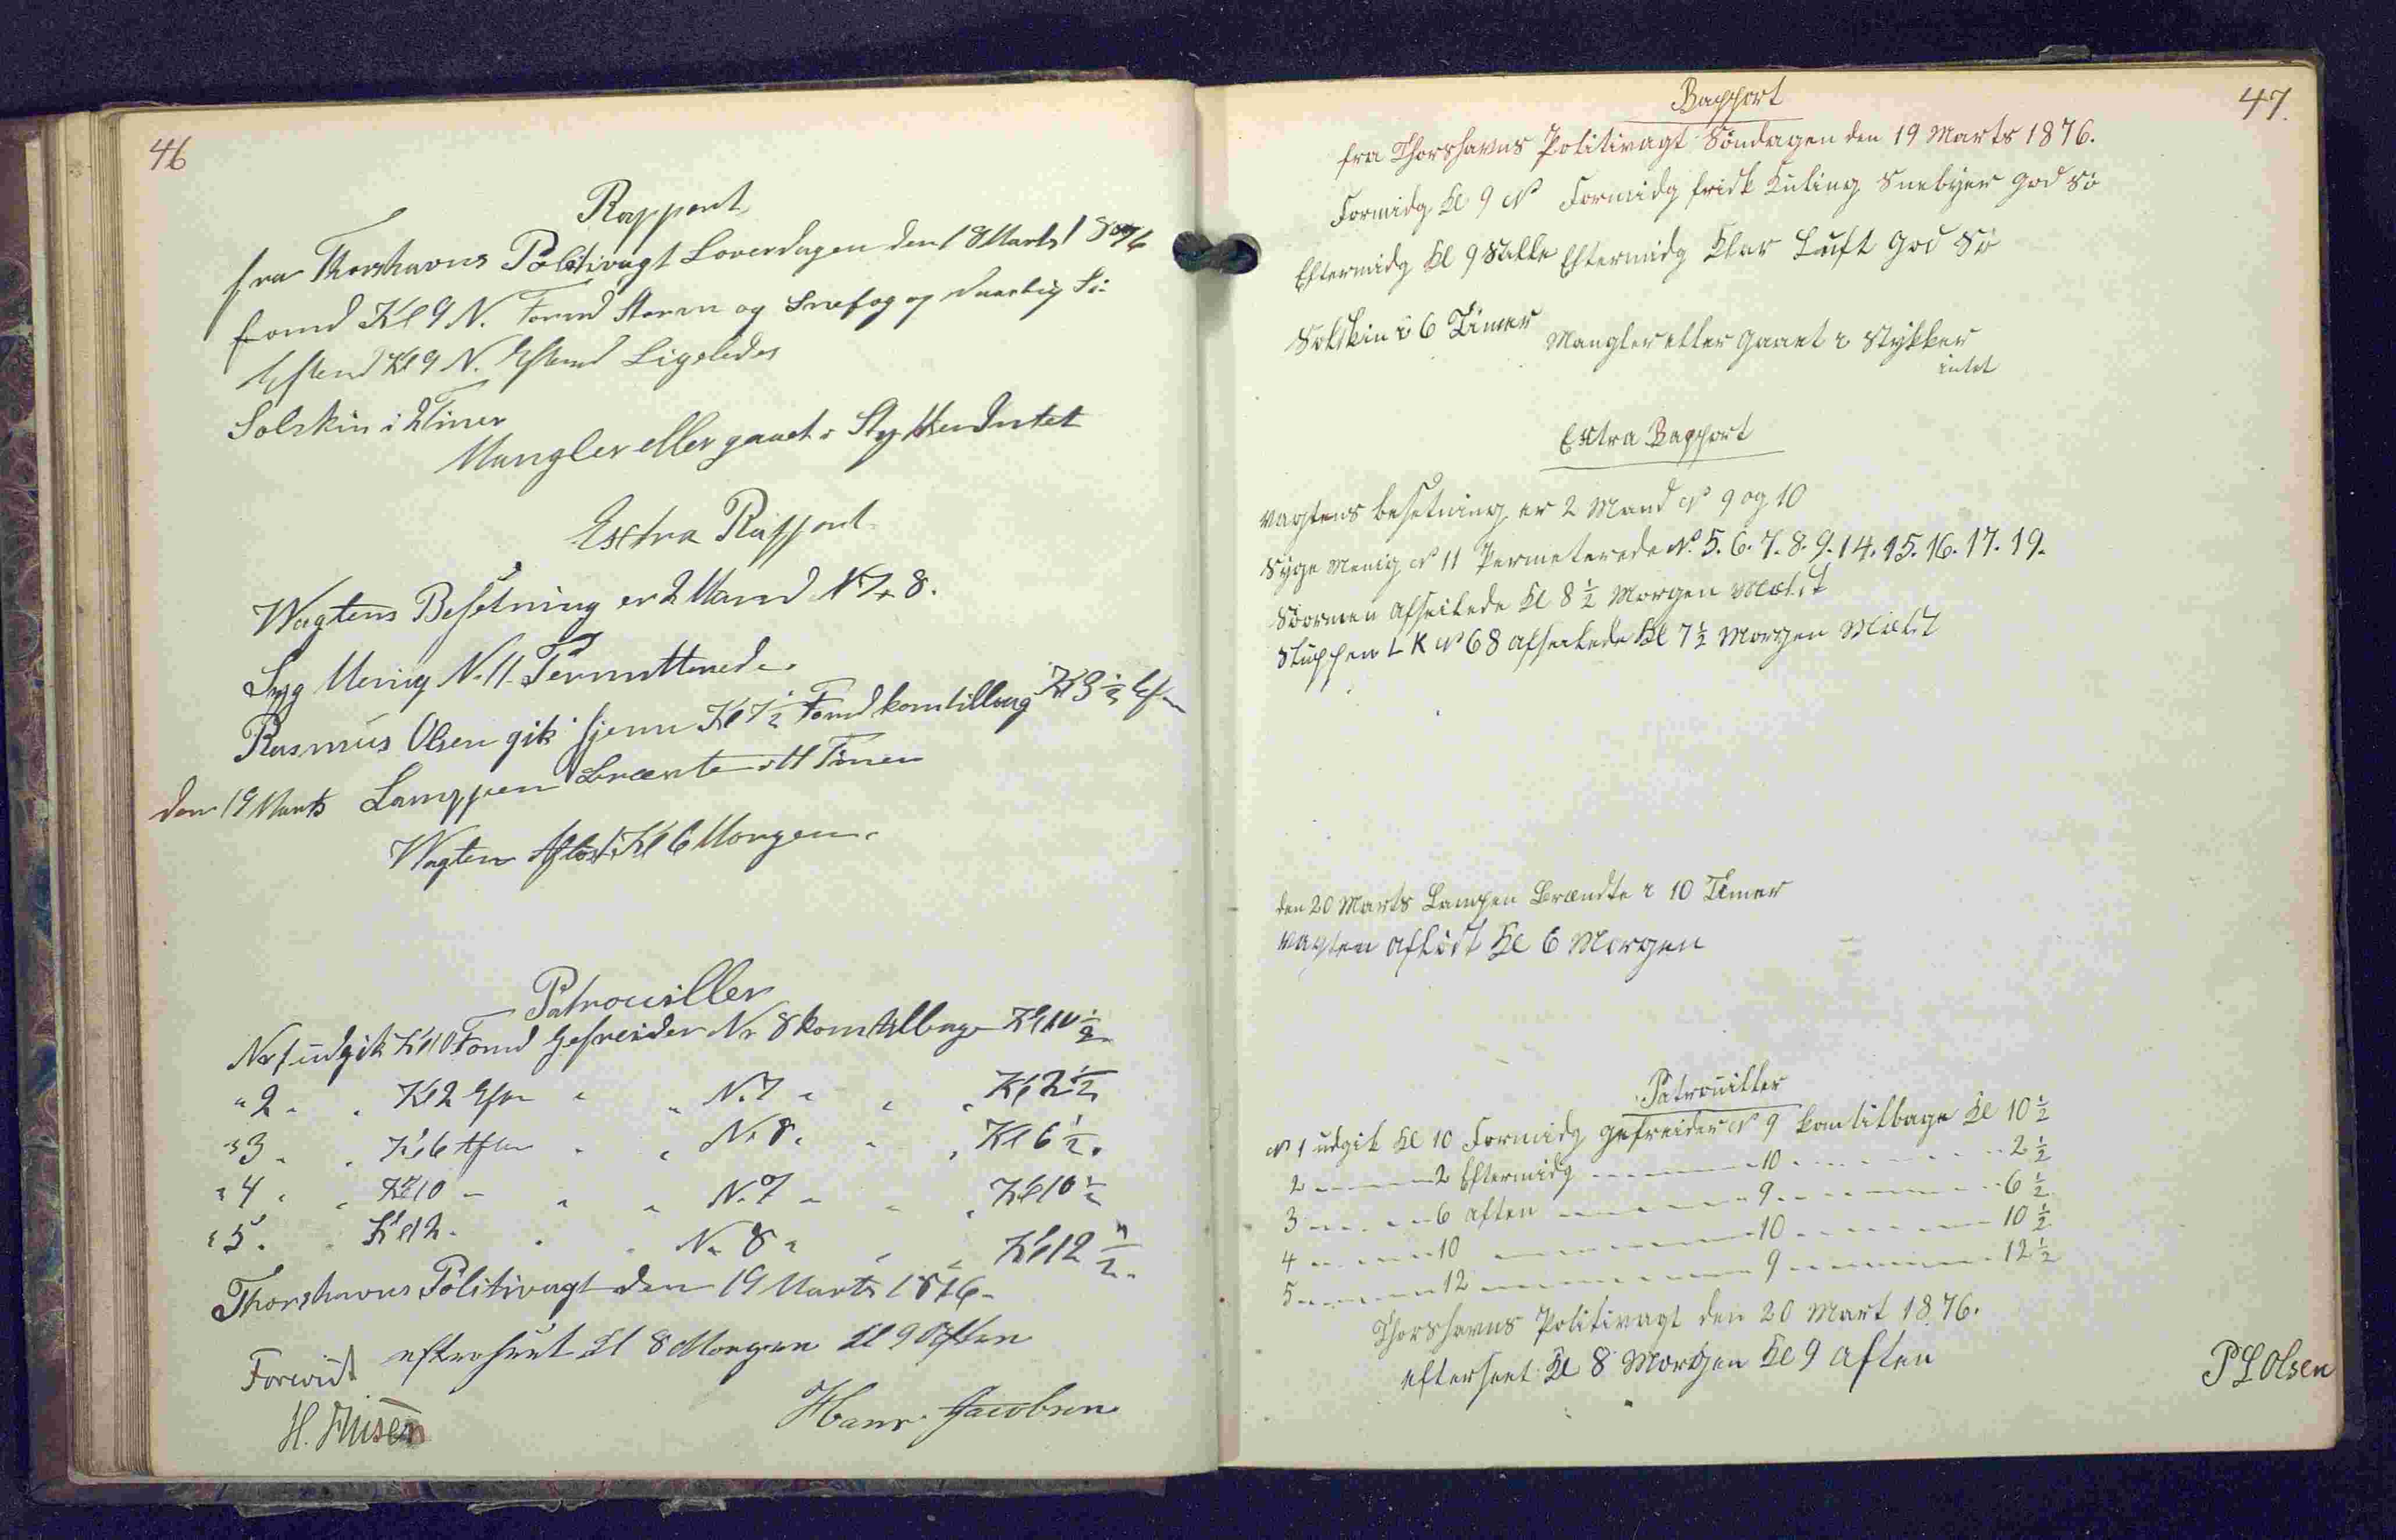 46
Rapport
fra Thorshavns Politivagt Loverdagen den 18 Marts 1876
fomd Kl 9 N. Formd Storm og Snefog og daarlig Sö
Eftemd Kl 9 N. Eftemd Ligeledes
Solskin i 2 Timer
Mangler eller gaaet i Stykker Intet
Extra Rapport
Wagtens Besetning er 2 Mand N. 7 & 8.
Syg Menig N. 11. Permitterede
Rasmus Olsen gik hjem Kl 7½ Fomd kom tilbag Kl 3½ Efm
den 19 Marts Lamppen Brænte i 11 Timer
Wagten Afløst Kl 6 Morgen.
Patrouiller
Nr 1 udgik Kl 10 Fomd Gefreider Nr 8 kom tilbage Kl 10½
" 2 " " Kl 2 Efm " " N. 7 " " " Kl 2½
" 3 " " Kl 6 Aften " " N. 8 " " " Kl 6½.
" 4 " " Kl 10 – " " N. 7 " " " Kl 10½
" 5 " " Kl 12 " " " N. 8 " " " Kl 12½.
Thorshavns Politivagt den 19 Marts 1876.
Forevist efterseet Kl 8 Morgen Kl 9 Aften
Hans Jacobsen
47.
Rapport
fra Thorshavns Politivagt Söndagen den 19 Marts 1876.
Formidg Kl 9 N Formidg frisk Kuling Snebyer god Sö
Eftermidg Kl 9 Stille Eftermidg Klar Luft god Sö
Solskin i 6 Timer
Mangler eller gaaet i Stykker
intet
Extra Rapport
Vagtens besetning er 2 Mand No 9 og 10
Syge Menig No 11 Permeterede No. 5. 6. 7. 8. 9. 14. 15. 16. 17. 19.
Söormen afseilede Kl 8½ Morgen Meldt
Sluppen L K No 68 afseilede Kl 7½ Morgen Meldt
den 20 Marts Lampen Brændte i 10 Timer
Vagten aflöst Kl 6 Morgen
Patrouiller
No 1 udgik Kl 10 Formidg gefreider No 9 kom tilbage Kl 10½
2 - - - - - 2 Eftermidg - - - - - 10 - - - - - 2½
3 - - - - - 6 aften - - - - - 9 - - - - - 6½
4 - - - - - 10 - - - - - 10 - - - - - 10½
5 - - - - - 12 - - - - - 9 - - - - - 12½
Thorshavns Politivagt den 20 Mart 1876.
efterseet Kl 8 Morgen Kl 9 aften
P L Olsen